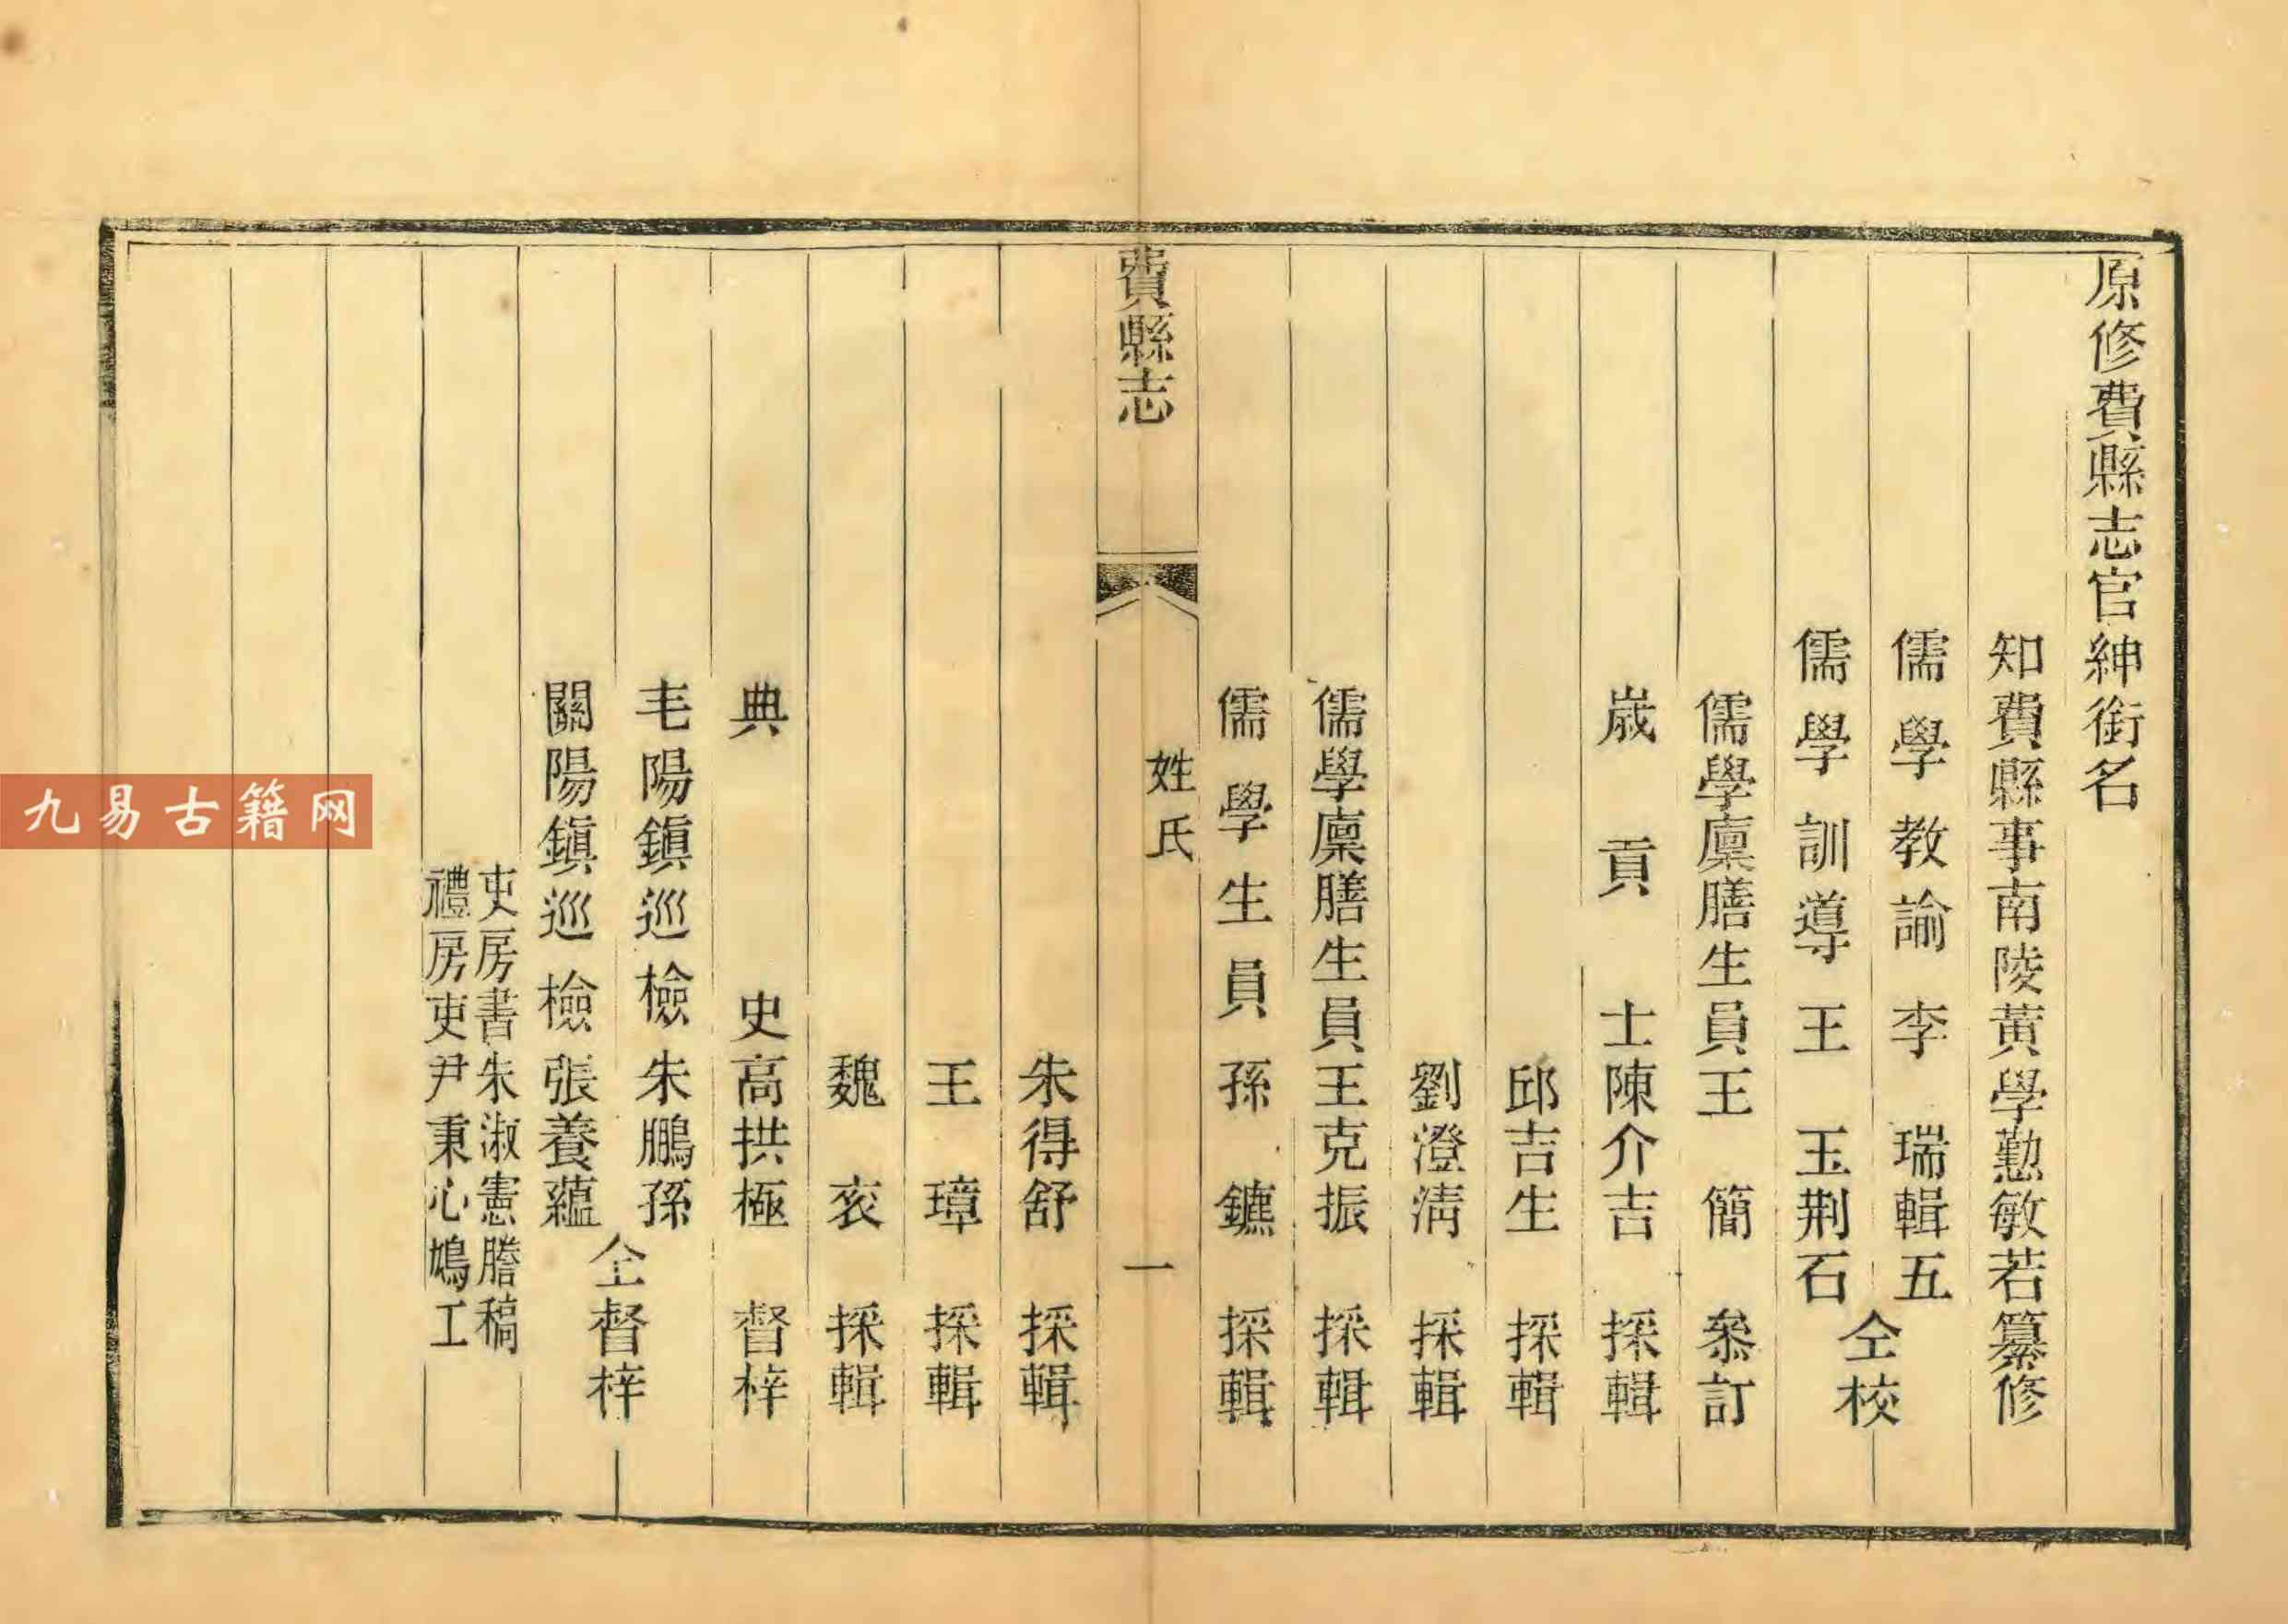 原修費縣志官紳銜名
知費縣事南陵黃學懃敏若纂修
儒學教諭李瑞輯五
儒學訓導王玉荆石
仝校
儒學廩膳生員王簡叅訂
歲貢士陳介吉採輯
邱吉生採輯
劉澄淸採輯
儒學廩膳生員王克振採輯
儒學生員孫鑣採輯
費縣志
姓氏
一
朱得舒採輯
王璋採輯
魏衮採輯
典史高拱極督梓
毛陽鎭巡檢朱鵬孫
關陽鎭巡檢張養蘊
仝督梓
吏房書朱淑憲謄稿
禮房吏尹秉心鳩工
九易古籍网